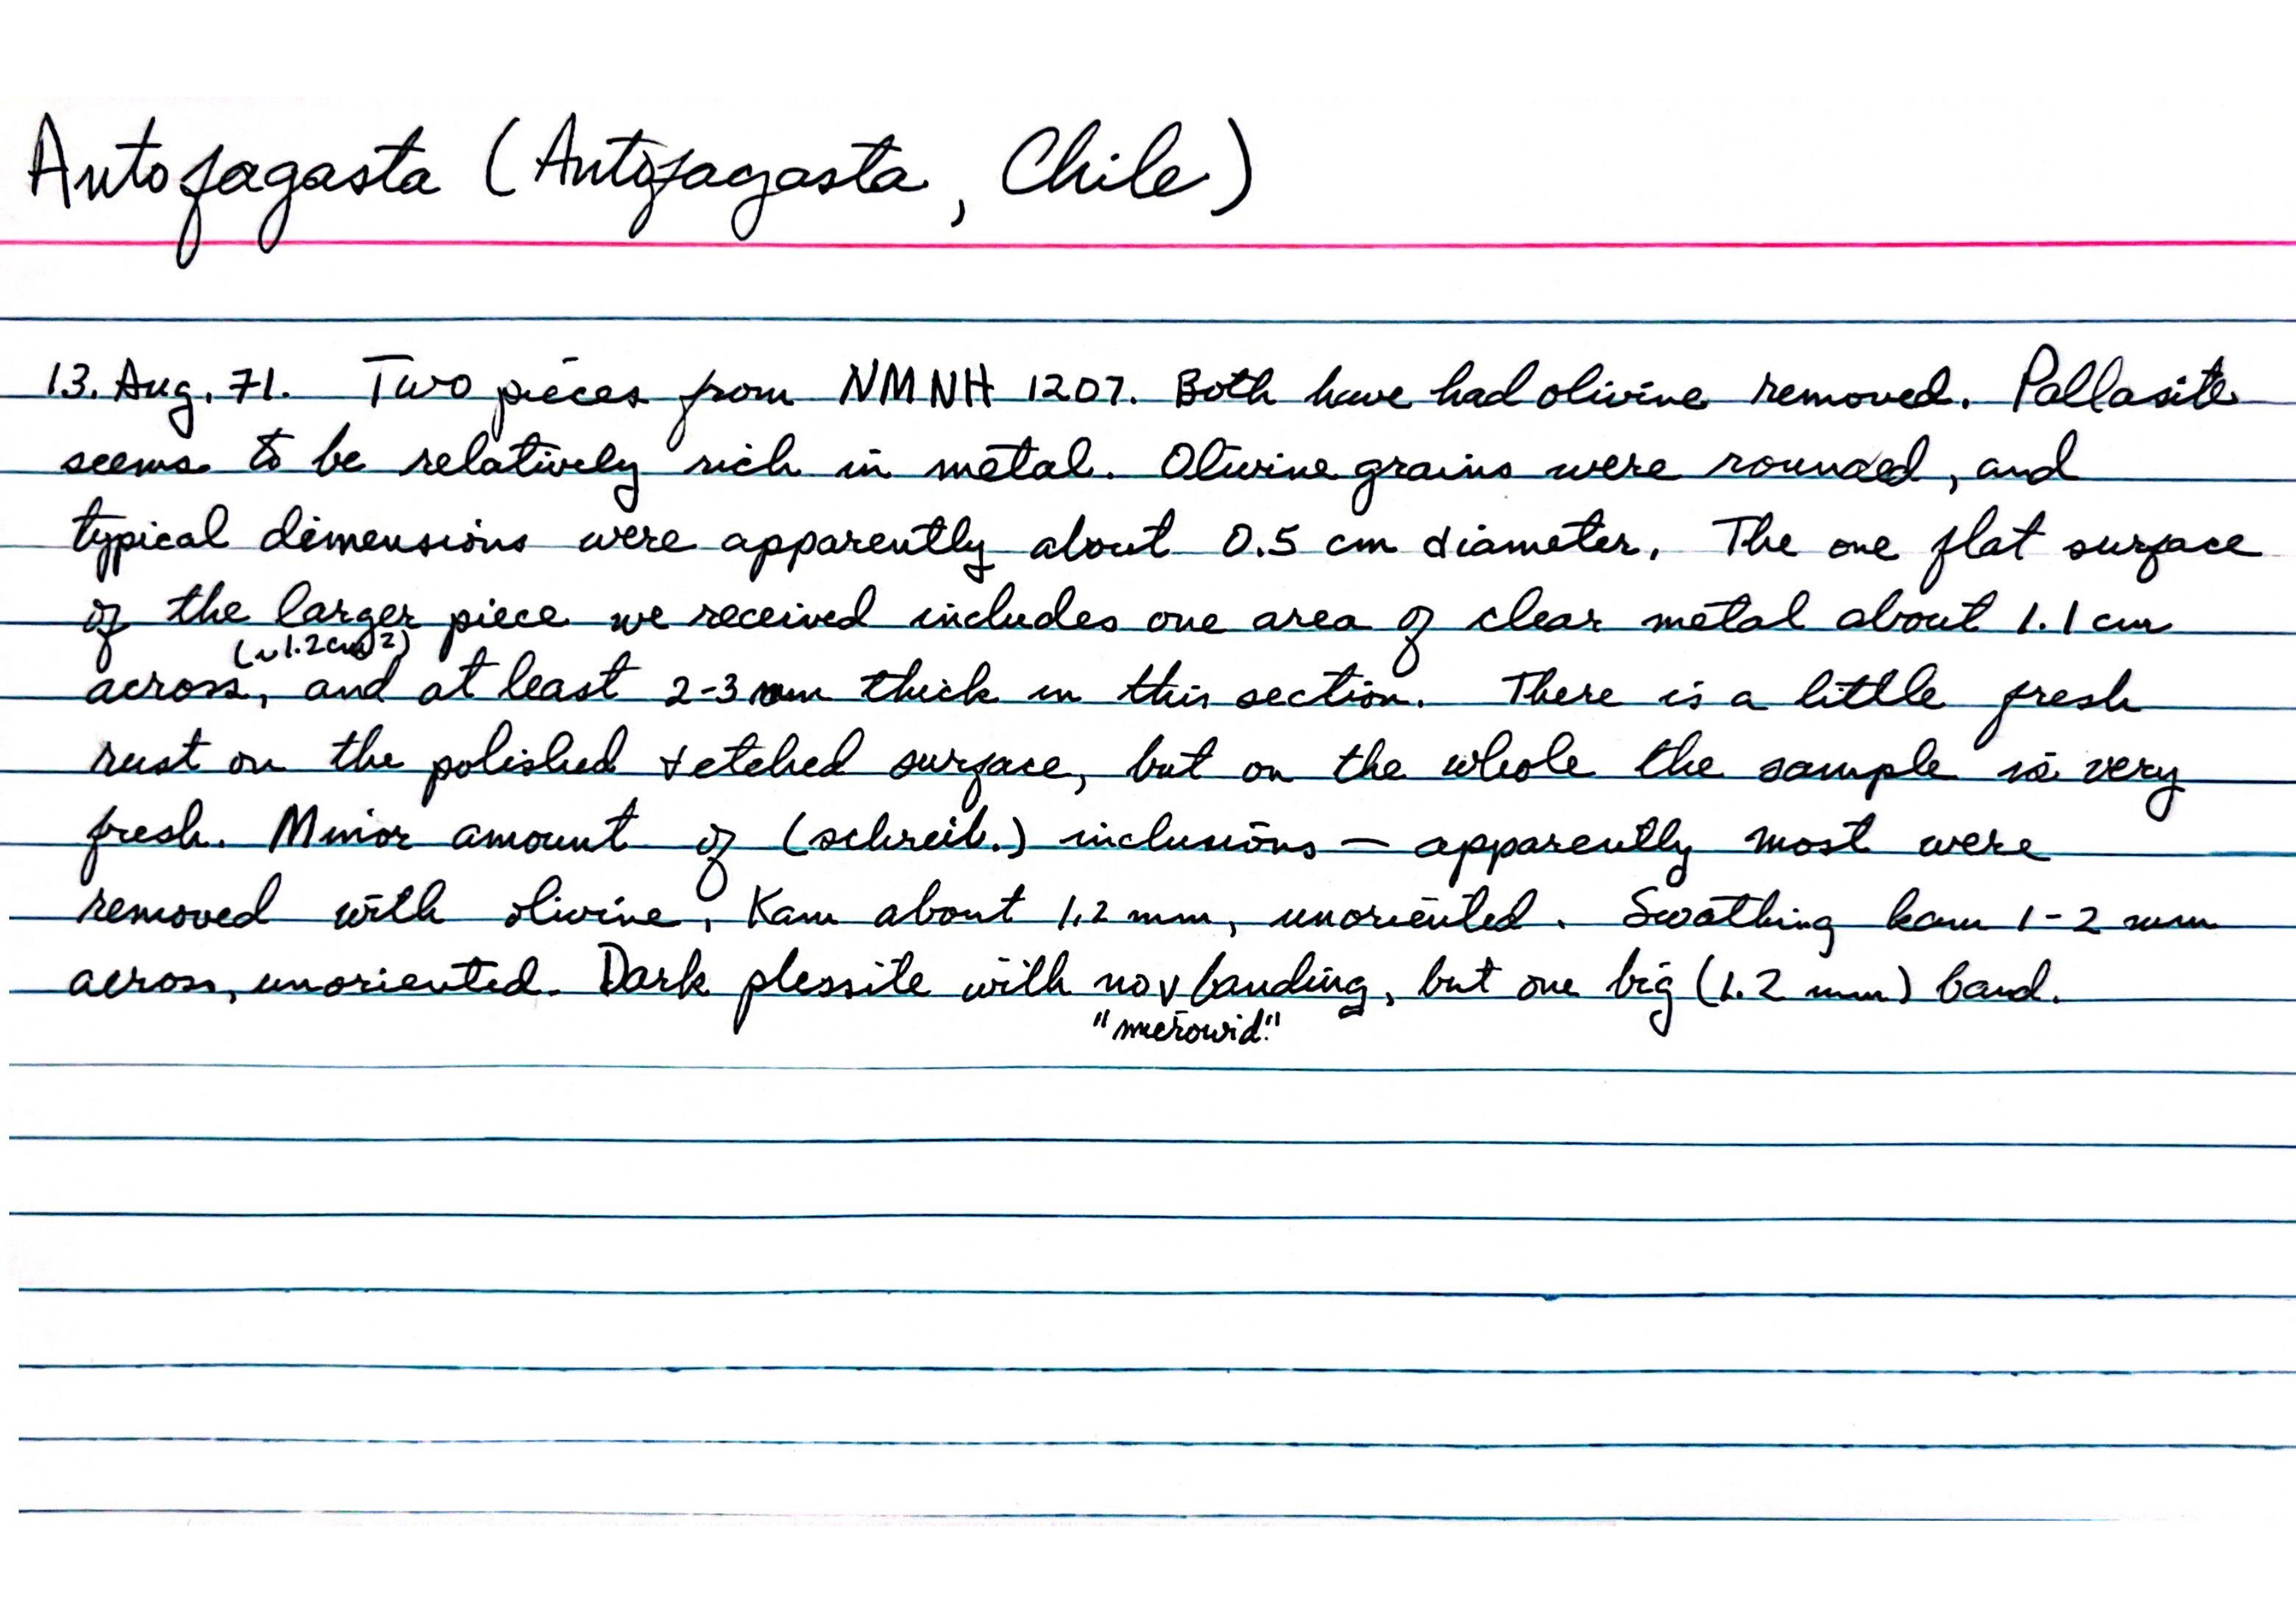 Antofagasta (Antofagasta, Chile)
13. Aug. 71. Two pieces from NMNH 1207. Both have had olivine removed. Pallasite
seems to be relatively rich in metal. Olivine grains were rounded, and
typical dimensions were apparently about 0.5 cm diameter. The one flat surface
of the larger piece we received includes one area of clear metal about 1.1 cm
(~1.2cm2)
across, and at least 2-3 mm thick in this section. There is a little fresh
rust on the polished + etched surface, but on the whole the sample is very
fresh. Minor amount of (schreib.) inclusions — apparently most were
removed with olivine. Kam about 1.2 mm, unoriented. Swathing kam 1-2 mm
across, unoriented. Dark plessite with no v banding, but one big (1.2 mm) band.
"microwid."